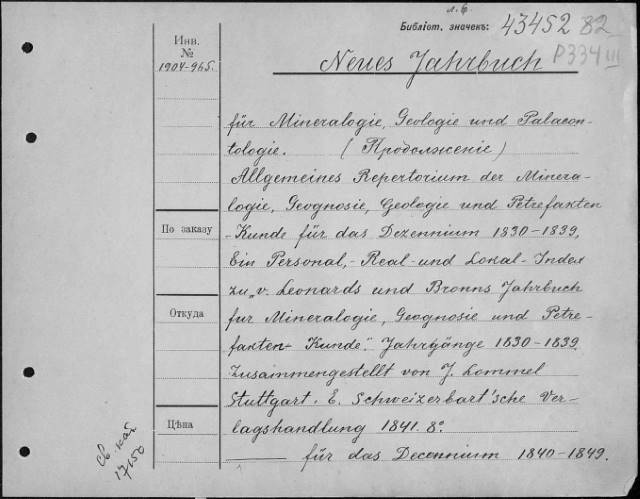 л. б.
Библіот. значекъ: 43452 82
P334 III
Инв.
№
1904-965.
Neues Jahrbuch
für Mineralogie, Geologie und Palaeon-
tologie. (Продолженіе)
Allgemeines Repertorium der Minera-
logie, Geognosie, Geologie und Petrefakten
По заказу
-Kunde für das Dezennium 1830-1839,
Ein Personal,- Real- und Lokal-Index
zu „v. Leonards und Bronns Jahrbuch
Откуда
fur Mineralogie, Geognosie und Petre-
fakten- Kunde". Jahrgänge 1830-1839.
Zusammengestellt von J. Lommel
Stuttgart. E. Schweizerbart'sche Ver-
Цѣна
lagshandlung 1841. 8°.
—— für das Decennium 1840-1849.
Св. кат
17150